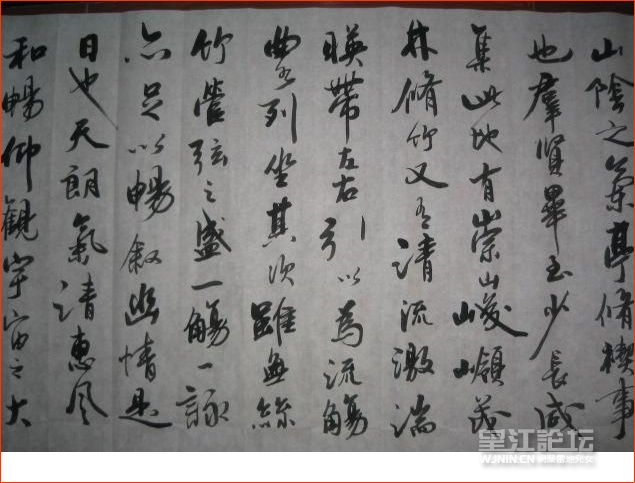 山陰之蘭亭脩禊事
也羣賢畢至少長咸
集此地有崇山峻嶺茂
林脩竹又有清流激湍
暎帶左右引以為流觴
曲水列坐其次雖無絲
竹管弦之盛一觴一詠
亦足以暢叙幽情是
日也天朗氣清惠風
和暢仰觀宇宙之大
望江論坛
WJNIN.CN